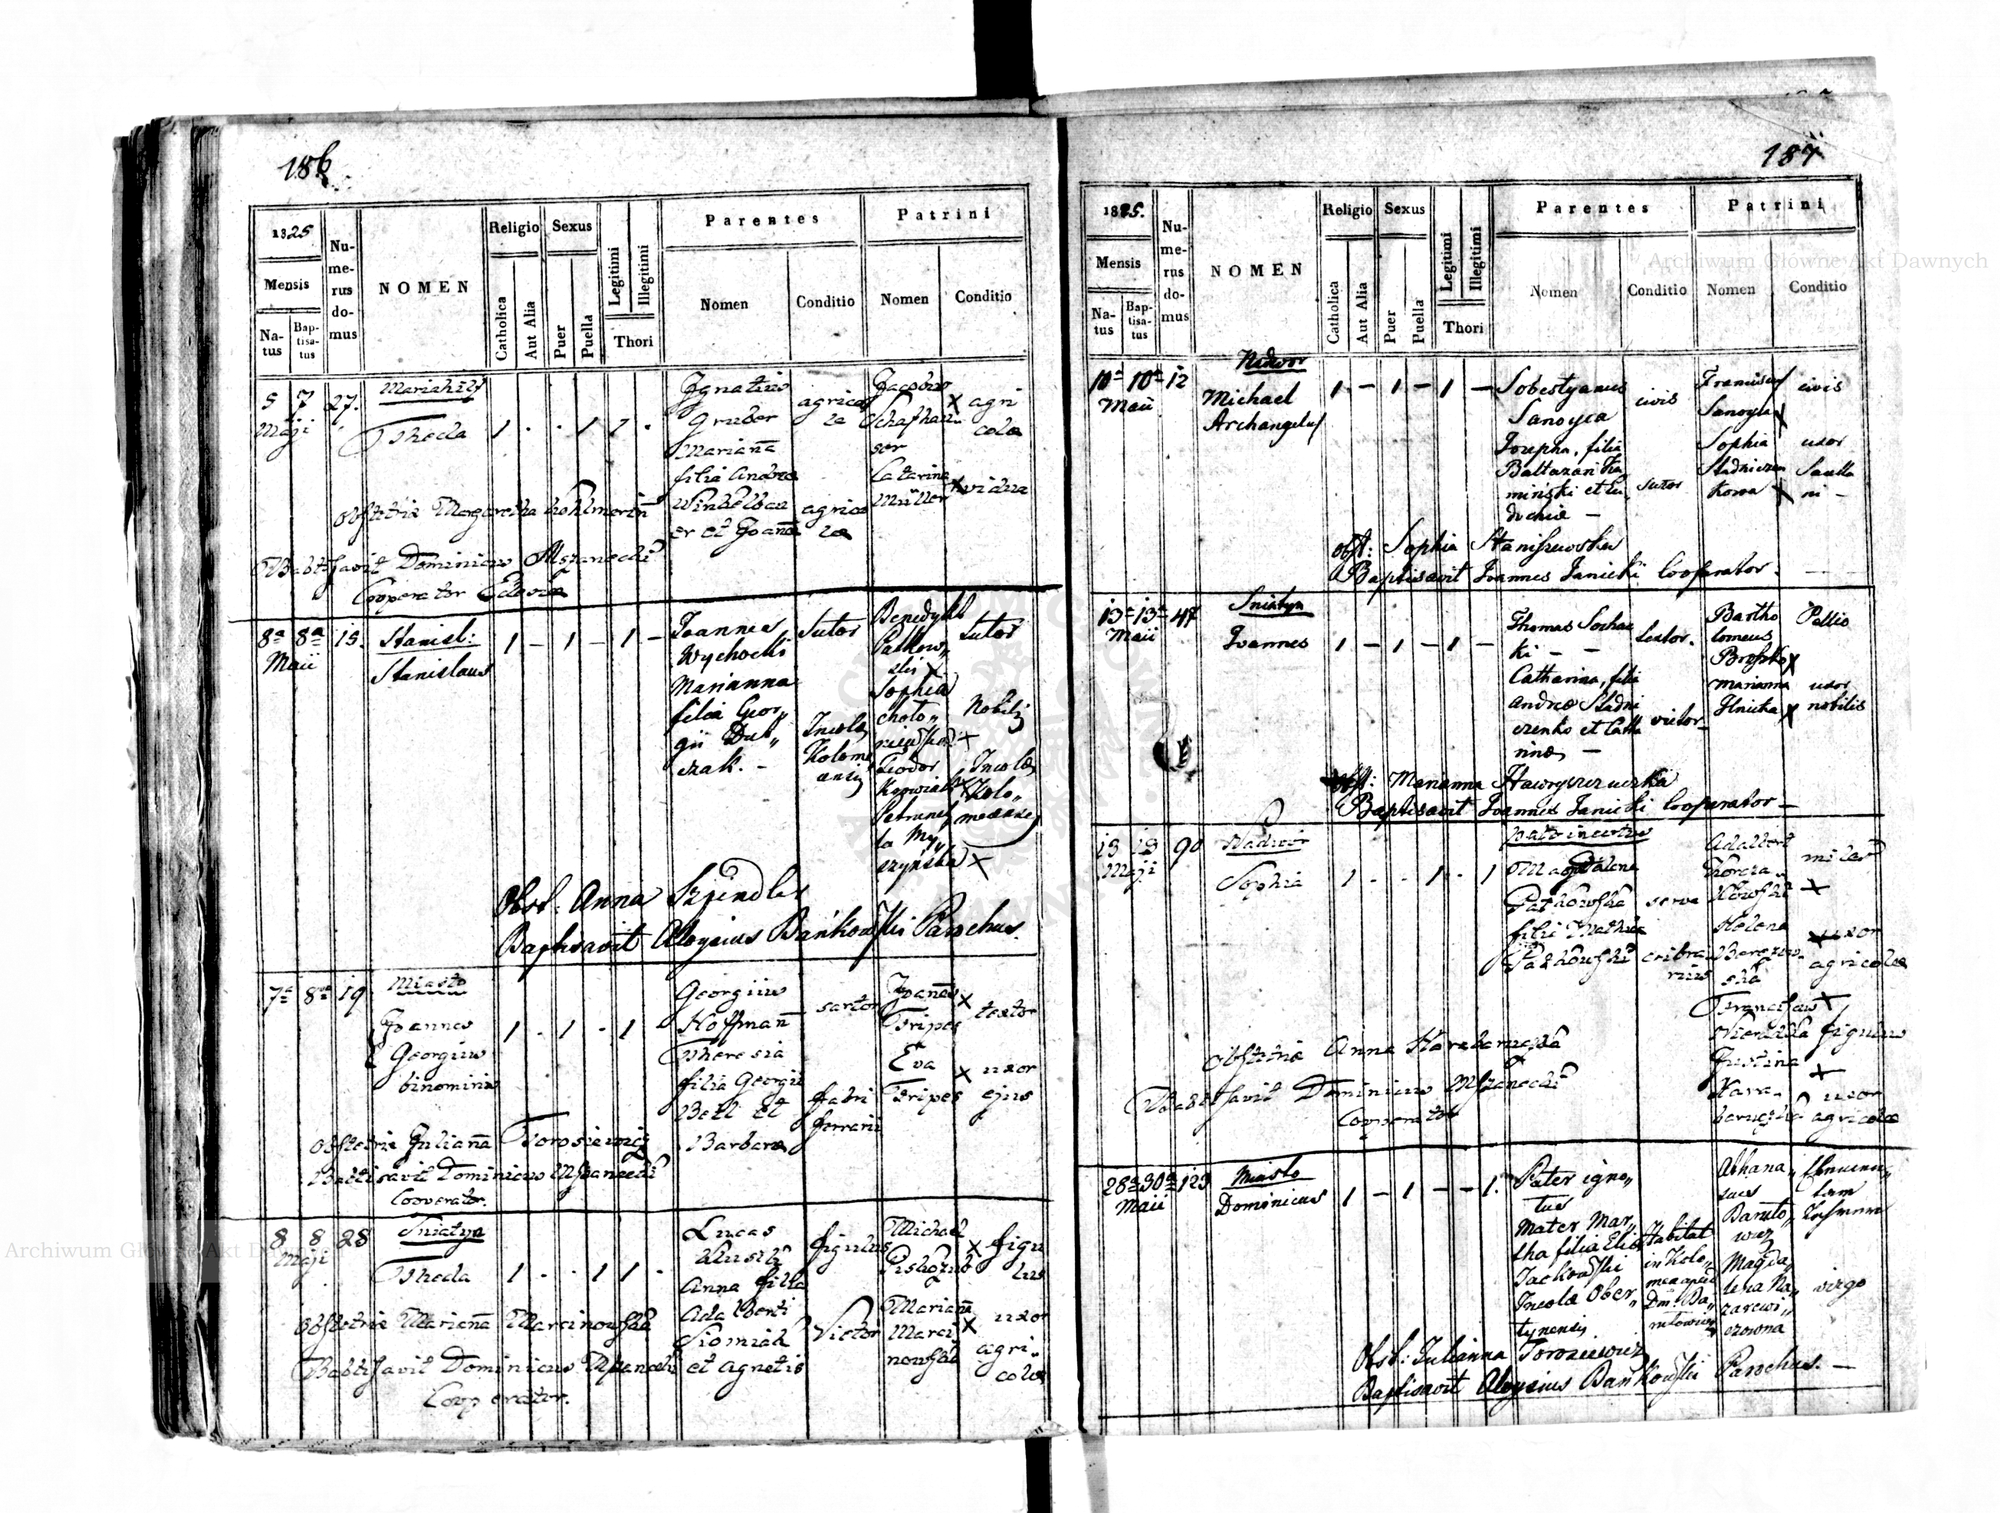 186
1825
Mensis
Natus
Baptisatus
Numerus domus
NOMEN
Religio
Catholica
Aut Alia
Sexus
Puer
Puella
Legitimi
Illegitimi
Thori
Parentes
Nomen
Conditio
Patrini
Nomen
Conditio
5 7 27.
Maji
Mariahilf
Theda
1 . . 1 1 .
Ignatius
Gruber
Mariana
filia Andreæ
er et Joanæ
agrico
læ
agrico
læ
Jacobus
Schafhau
ser
Catarina
Müller
x agri
colæ
x vidua
Obstetrix Margaretha
Babtisavit Dominicus Mszanecki
Cooperator
8a 8a 15.
Maii
Stanisl:
Stanislaus
1 – 1 – 1 –
Joannes
Wychocki
Marianna
filia Geor„
gii Dut„
czak. –
Sutor
Incolæ
Kolom
Benedykt
Palkow„
ski x
Sophia
Teodor
Petrunel„
la My„
szyńska x
Sutor
Nobilis
Incolæ
Kolo„
Obst. Anna Szpindler
Baptisavit Aloysius Bańkowski Parochus.
7a 8va 19
Miasto
Joannes
Georgius
binominis
1 . 1 . 1
Georgius
Hoffman
Theresia
filia Georgii
Bell et
Barbaræ
sartor
fabri
ferrarii
Joanes
Tripes
Eva
Tripes
x textor
x uxor
ejus
Obstetrix Juliana Torosiewicz
Babtisavit Dominicus Mszanecki
Cooperator.
8 8 28
Maji
Sniatyn
Theda
1 . . 1 1 .
Lucas
Anna filia
Adalberti
Siomiak
et Agnetis
figulus
Victor
Michael
Mariana
Marci
nowska
x figu
lus
x uxor
agri.
colæ
Obstetrix Mariana Marcinowska
Babtisavit Dominicus Mszanecki
Cooperator.
187
1825.
Mensis
Natus
Baptisatus
Numerus domus
NOMEN
Religio
Catholica
Aut Alia
Sexus
Puer
Puella
Legitimi
Illegitimi
Thori
Parentes
Nomen
Conditio
Patrini
Nomen
Conditio
10a 10a 12
Maii
Nadwor
Michael
Archangelus
1 – 1 – 1 –
Sobestyanus
Sanoyca
Josepha, filia
Baltazari Ka
miński et Eu
dochiæ –
civis
sutor
Franciscus
Sanoyca x
Sophia
Stadniczen
kowa x
civis
uxor
Obst: Sophia Staniszewska
Baptisavit Joannes Janicki Cooperator.
13a 13a 47
Maii
Sniatyn
Joannes
1 – 1 – 1 –
Thomas Sochac
ki – –
Catharina, filia
Andreæ Stadni
czenko et Catha
rinæ –
textor.
victor
Bartho
lomeus
x
Marianna
Ilnicka x
Pellio
uxor
nobilis
Obst: Marianna Hawryszczuczka
Baptisavit Joannes Janicki Cooperator –
13 13 90
Maji
Nadwor
Sophia
1 . . 1 . 1
Pater incertus
Magdalena
Pazkowska
filia Mathiæ
Pazkowski
serva
cribra
rius
Adalbert
Helena
Berezow
ska
Franciscus x
Justina
miles
x
uxor
agricolæ
figulus
x
uxor
agricolæ
Obstetrix Anna
Babtisavit Dominicus Mszanecki
Cooperator
28a 30a 123
Maii
Miasto
Dominicus
1 – 1 – – 1.
Pater igno„
tus
Mater Mar„
tha filia Eliæ
Jackowski
Incolæ Ober„
tynensis
Habitat
in Kolo„
mea apud
Dm. Ba„
rutowicz
Athana„
sius
Baruto„
wicz
Magda„
lena Na„
zarewi„
czowna
virgo
Obst: Julianna Torosiewicz
Baptisavit Aloysius Bańkowski Parochus. –
Archiwum Główne Akt Dawnych
Archiwum Główne Akt D